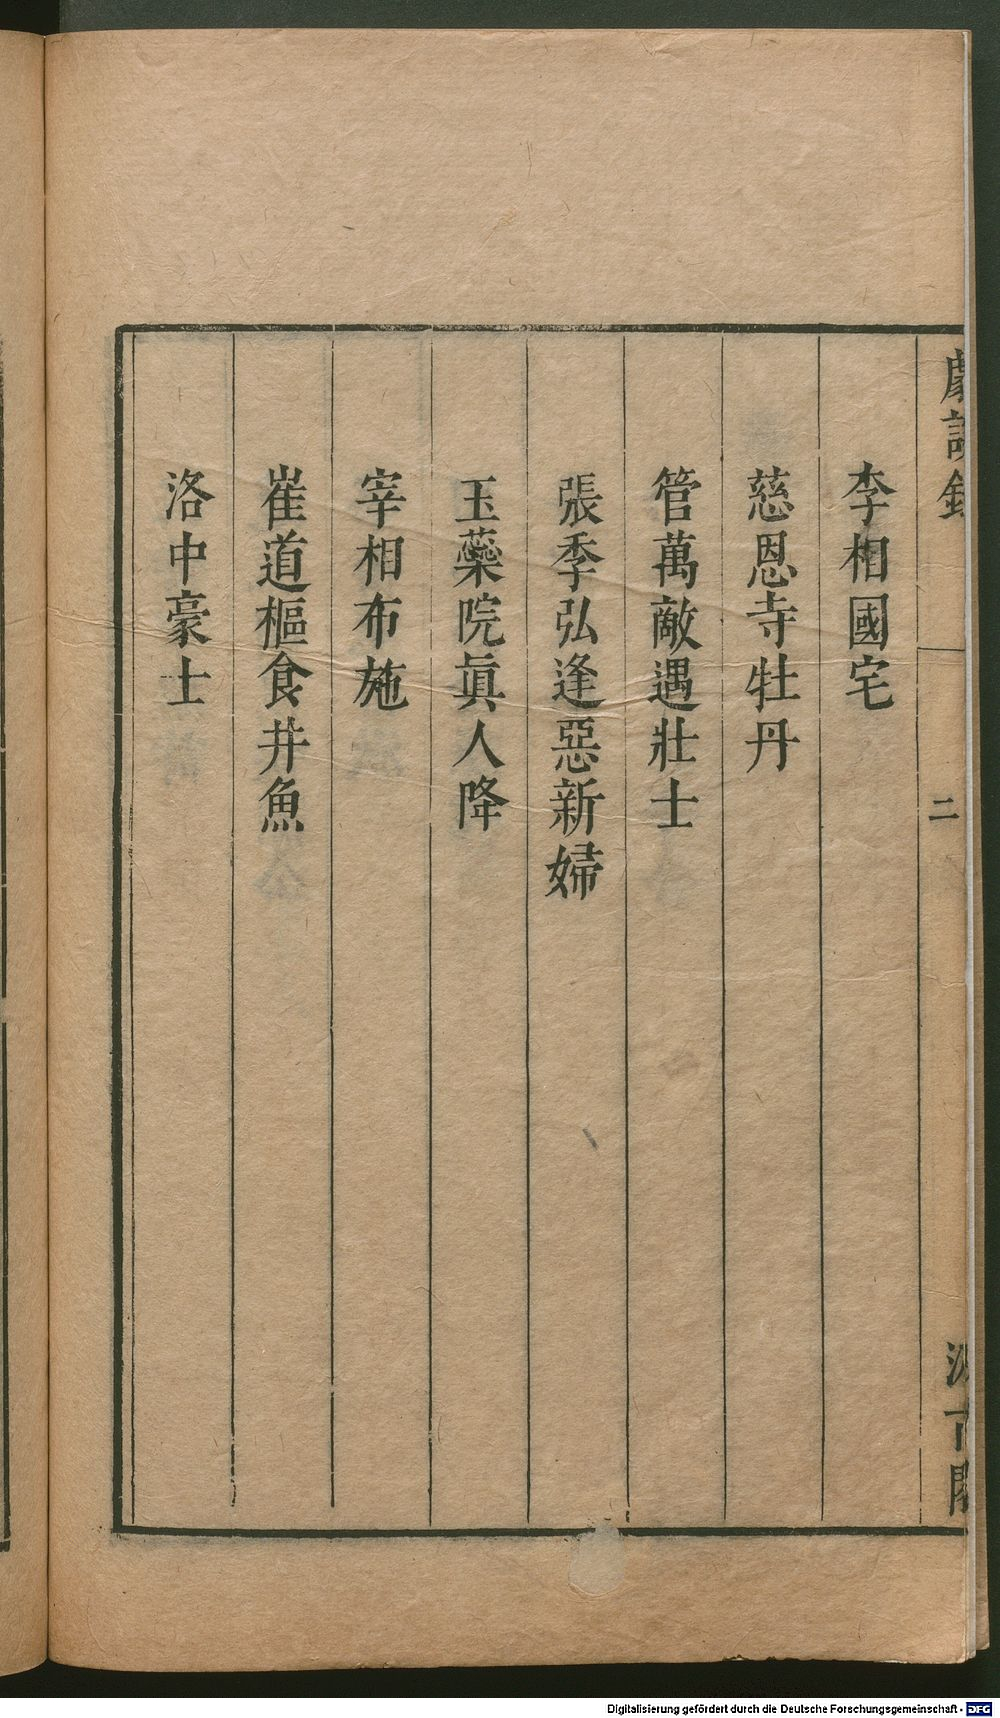 劇談錄
二
汲古閣
李相國宅
慈恩寺牡丹
管萬敵遇壯士
張季弘逢惡新婦
玉蘂院眞人降
宰相布施
崔道樞食井魚
洛中豪士
Digitalisierung gefördert durch die Deutsche Forschungsgemeinschaft - DFG